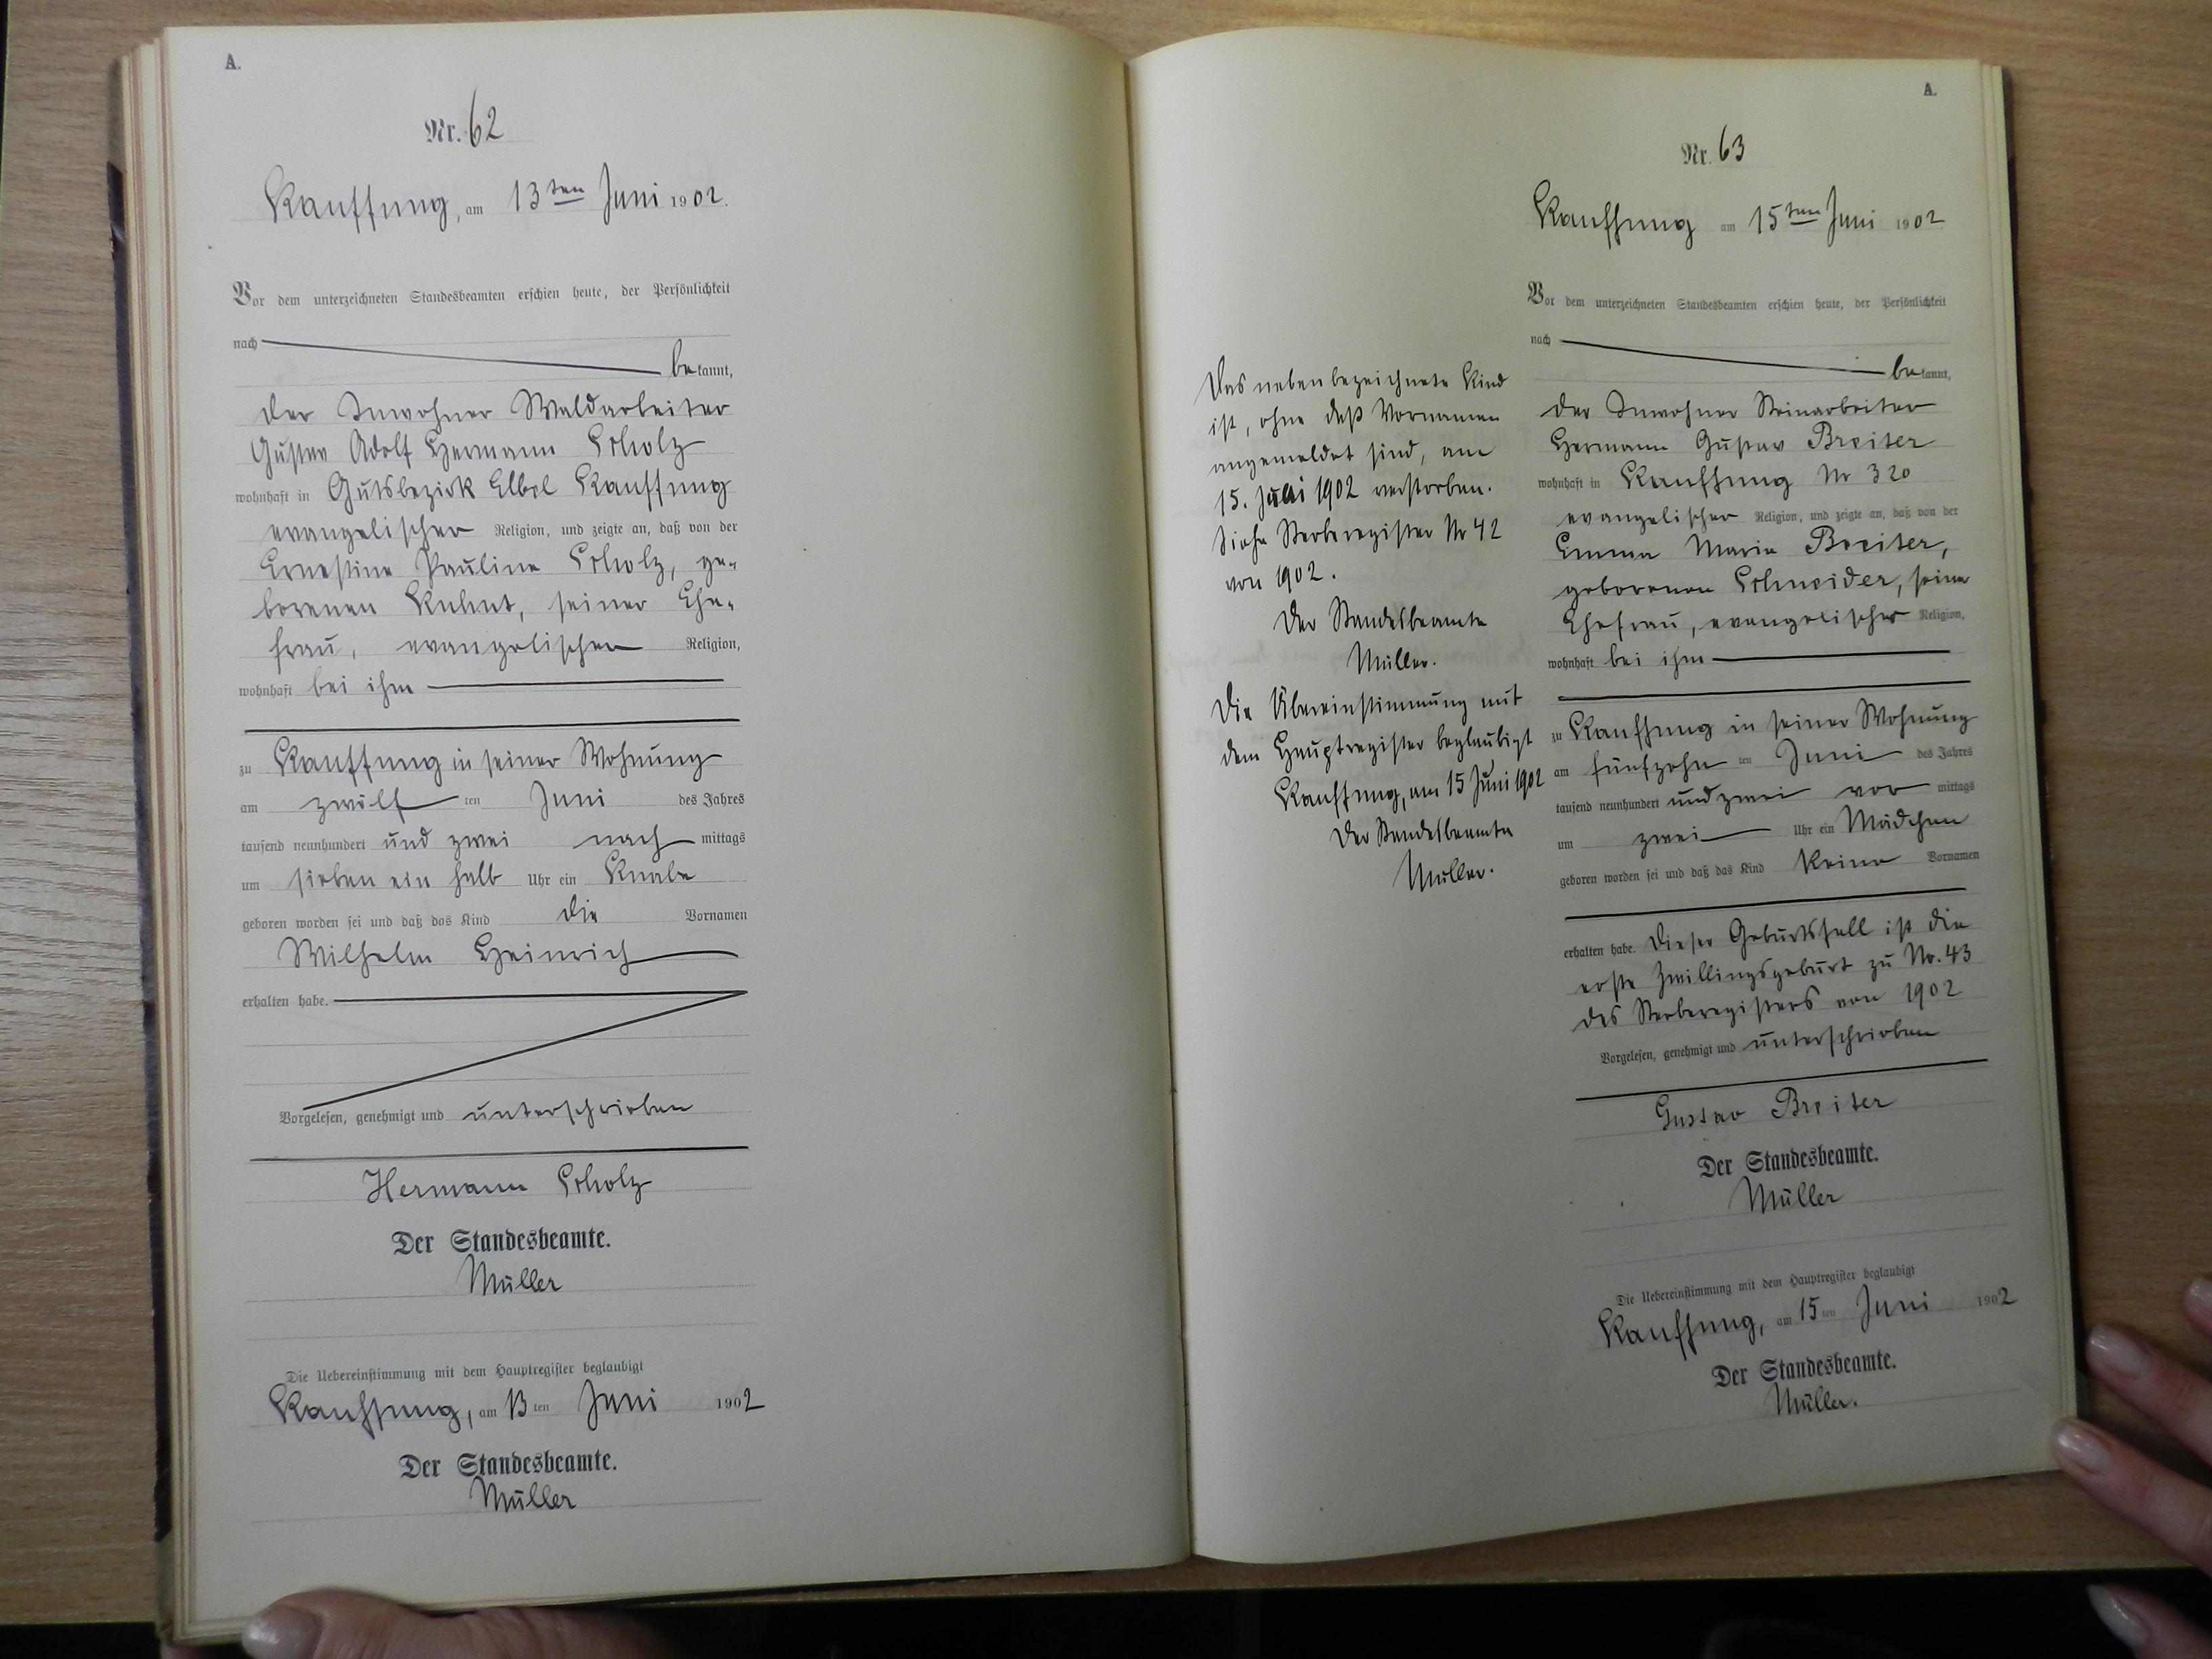 A.
Nr. 62
Kauffung, am 13ten Juni 1902.
Vor dem unterzeichneten Standesbeamten erschien heute, der Persönlichkeit
nach
bekannt,
der Inwohner Waldarbeiter
Gustav Adolf Hermann Scholz
wohnhaft in Gutsbezirk Elbel Kauffung
evangelischer Religion, und zeigte an, daß von der
Ernestine Pauline Scholz, ge-
borenen Kuhnt, seiner Ehe-
frau, evangelischer Religion,
wohnhaft bei ihm
zu Kauffung in seiner Wohnung
am zwölf ten Juni des Jahres
tausend neunhundert und zwei nach mittags
um sieben ein halb Uhr ein Knabe
geboren worden sei und daß das Kind die Vornamen
Wilhelm Heinrich
erhalten habe.
Vorgelesen, genehmigt und unterschrieben
Hermann Scholz
Der Standesbeamte.
Müller
Die Uebereinstimmung mit dem Hauptregister beglaubigt
Kauffung, am 13ten Juni 1902
Der Standesbeamte.
Müller
A.
Nr. 63
Kauffung am 15ten Juni 1902
Vor dem unterzeichneten Standesbeamten erschien heute, der Persönlichkeit
nach
bekannt,
der Inwohner Steinarbeiter
Hermann Gustav Breiter
wohnhaft in Kauffung Nr 320
evangelischer Religion, und zeigte an, daß von der
Emma Maria Breiter,
geborenen Schneider, seine
Ehefrau, evangelischer Religion,
wohnhaft bei ihm
zu Kauffung in seiner Wohnung
am fünfzehn ten Juni des Jahres
tausend neunhundert und zwei vor mittags
um zwei Uhr ein Mädchen
geboren worden sei und daß das Kind keine Vornamen
erhalten habe. Dieser Geburtsfall ist die
erste Zwillingsgeburt zu No. 43
des Sterberegisters von 1902
Vorgelesen, genehmigt und unterschrieben
Gustav Breiter
Der Standesbeamte.
Müller
Die Uebereinstimmung mit dem Hauptregister beglaubigt
Kauffung, am 15ten Juni 1902
Der Standesbeamte.
Müller.
Das nebenbezeichnete Kind
ist, ohne daß Vornamen
angemeldet sind, am
15. Juni 1902 verstorben.
Siehe Sterberegister Nr 42
von 1902.
Der Standesbeamte
Müller.
Die Übereinstimmung mit
dem Hauptregister beglaubigt
Kauffung, am 15 Juni 1902
Der Standesbeamte
Müller.